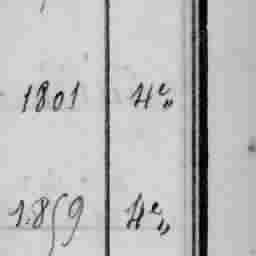 1801 4e"
1859 4e"